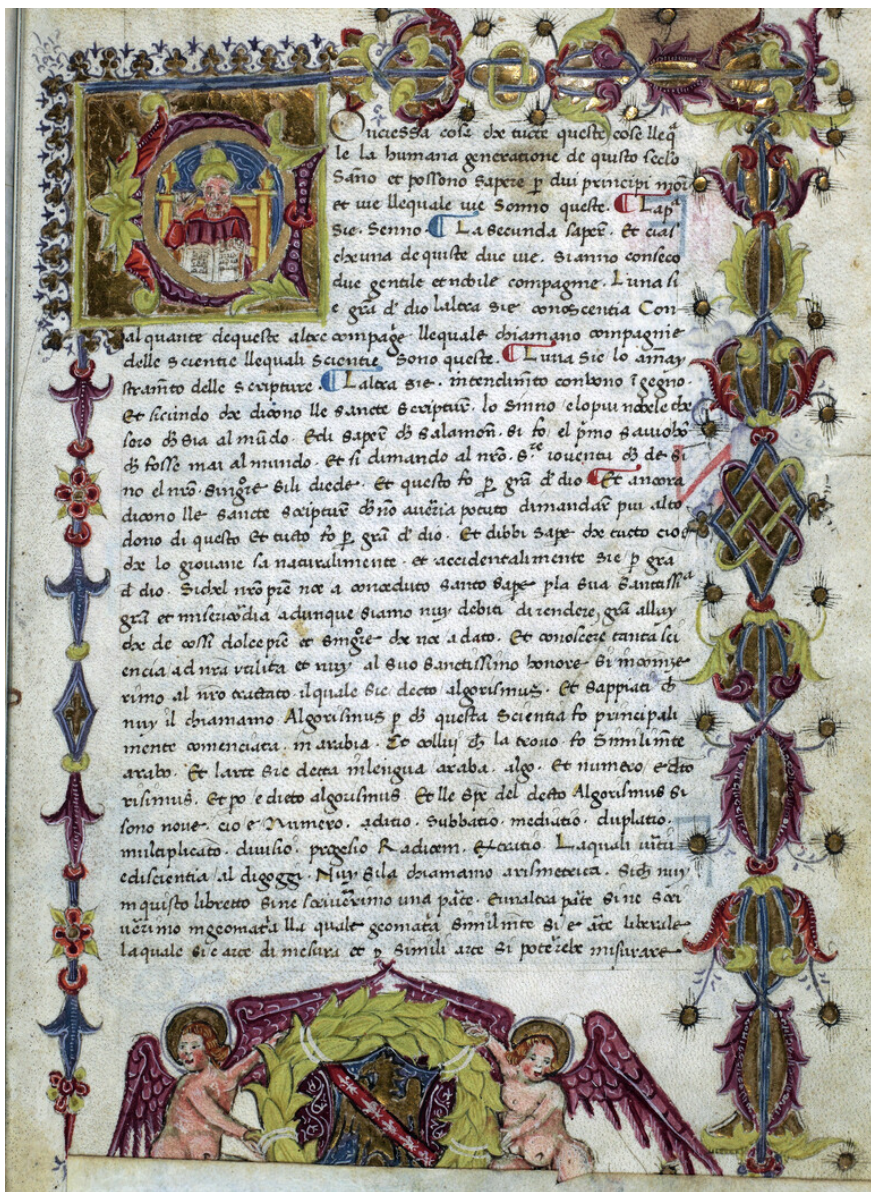 Ouciessa cosa che tucte queste cose lleq̃
le la humana generatione de quisto seclo
Sanno et possono sapere p dui principi
et uie llequale uie Sonno queste. ¶ La pª
Sie. Senno. ¶ La secunda saper̃. Et cias
cheuna de quiste due uie. Si anno conseco
due gentile et nobile compagnie. Luna si
e grã d' dio laltra Sie conoscentia Con
al quante de queste altre compag̃e llequale chiamano compagnie
delle Scientie llequali Scientie Sono queste. ¶ Luna Sie lo amay
stram̃to delle Scripture. ¶ Laltra Sie. intendim̃to con bono ĩgegno.
Et sicundo che dicono lle sancte Scriptur̃. lo Sinno elopiu nobele che
Sero ch̃ Sia al mũdo. Et di saper̃ ch̃ Salamoñ. Si fo. el p̃mo Sauio hõ
ch̃ fosse mai al mundo. Et si dimando al nrõ. Sre iouentu ch̃ de si
no el nrõ. Singr̃e Sili diede. Et questo fo p grã d' dio ¶ Et ancora
dicono lle sancte Scriptur̃ ch̃ nõ auer̃ia potuto dimandar̃ piu alto
dono di questo Et tucto fo p grã d' dio. Et dibbi Sape che tucto cio
che lo giouane sa naturalimente. et accidentalimente Sie p gra
d' dio. Sichel nrõ prẽ noe a conceduto Santo Sape pla Sua Santissiª
grã et misericordia adunque Siamo nuy debiti di rendere grã alluy
che de cossi dolce prẽ et Singr̃e che noe a dato. Et conoscere tanta sci
encia ad nra utilita et nuy al Suo Sanctissimo honore Si incomze
rimo al nrõ tractato. il quale Sie decto algorismus. Et Sappiati ch̃
nuy il chiamamo Algorismus p ch̃ questa Scientia fo principali
mente comenciata. in arabia. Et colluj ch̃ la trouo fo Similim̃te
arabo. Et larte Sie decta in lengua araba. algo. Et numero / e dcto
risimus. Et po / e dicto algorismus. Et lle Spẽ del decto Algorismus Si
sono noue. cio e Numero. aditio. Subbatio. mediatio. duplatio.
multiplicatõ. diuisiõ. progesio Radicem. Laquali
e discientia al digoggi. Nuy Sila chiamamo arismetrica. Sich̃ nuy
in quisto libretto Sine scriuer̃imo una par̃te. Et unaltra par̃te Sine Scri
uer̃imo in geomatr̃a lla quale geomatr̃a Similim̃te Si / e ar̃te liberale
la quale Sie arte di mesura et p Simili arte Si poterebe misurare